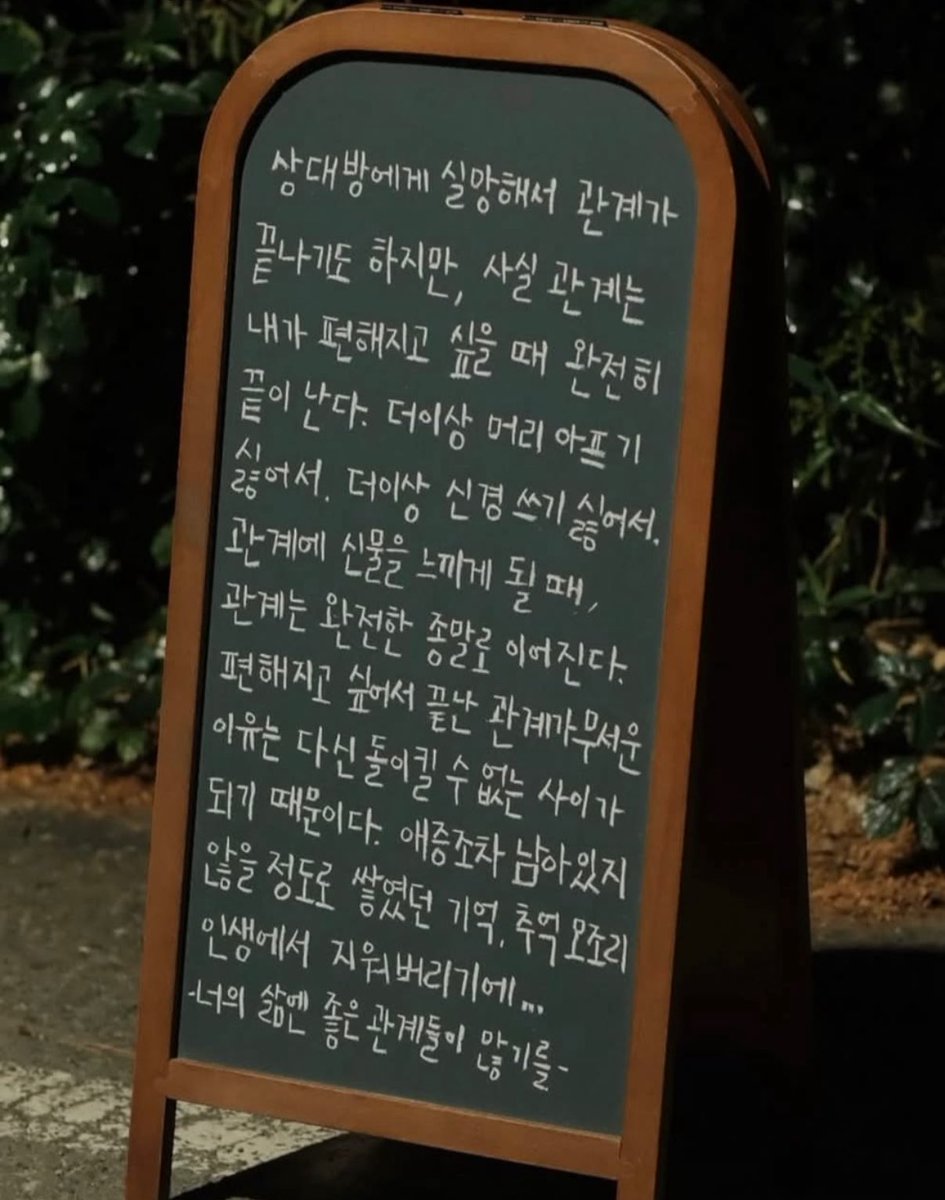 상대방에게 실망해서 관계가
끝나기도 하지만, 사실 관계는
내가 편해지고 싶을 때 완전히
끝이 난다. 더이상 머리 아프기
싫어서. 더이상 신경 쓰기 싫어서.
관계에 신물을 느끼게 될 때,
관계는 완전한 종말로 이어진다.
편해지고 싶어서 끝난 관계가 무서운
이유는 다신 돌이킬 수 없는 사이가
되기 때문이다. 애증조차 남아있지
않을 정도로 쌓였던 기억, 추억 모조리
인생에서 지워버리기에...
-너의 삶엔 좋은 관계들이 많기를-